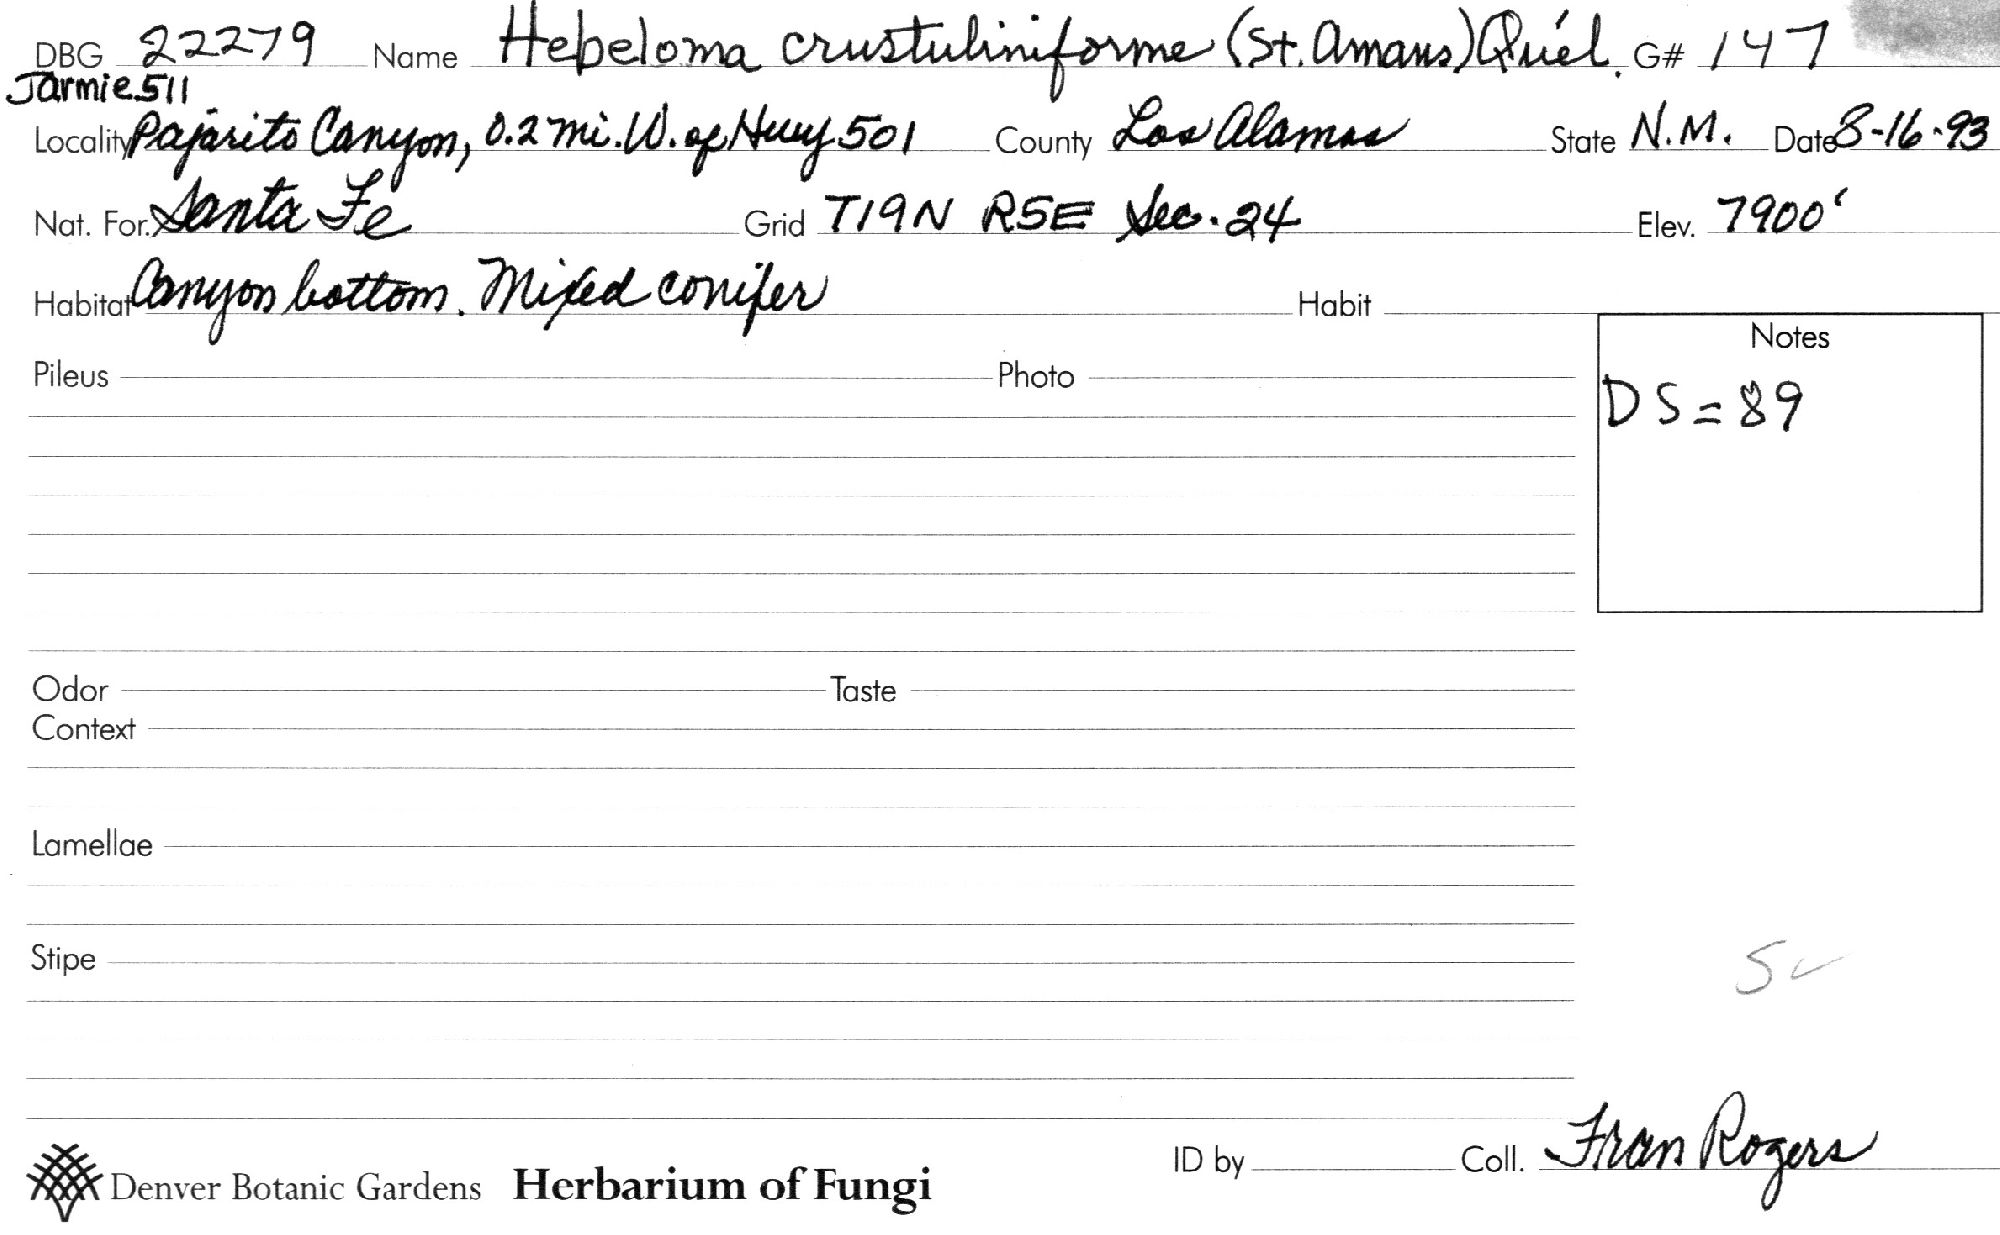 DBG 22279 Name Hebeloma crustuliniforme (St. Amans) Quél. G# 147
Jarmie 511
Locality Pajarito Canyon, 0.2 mi. W. of Hwy 501 County Los Alamos State N.M. Date 8-16-93
Nat. For. Santa Fe Grid T19N R5E Sec. 24 Elev. 7900'
Habitat Canyon bottom. Mixed conifer Habit
Notes
Pileus Photo
DS = 89
Odor Taste
Context
Lamellae
Stipe
ID by Coll. Fran Rogers
Denver Botanic Gardens Herbarium of Fungi